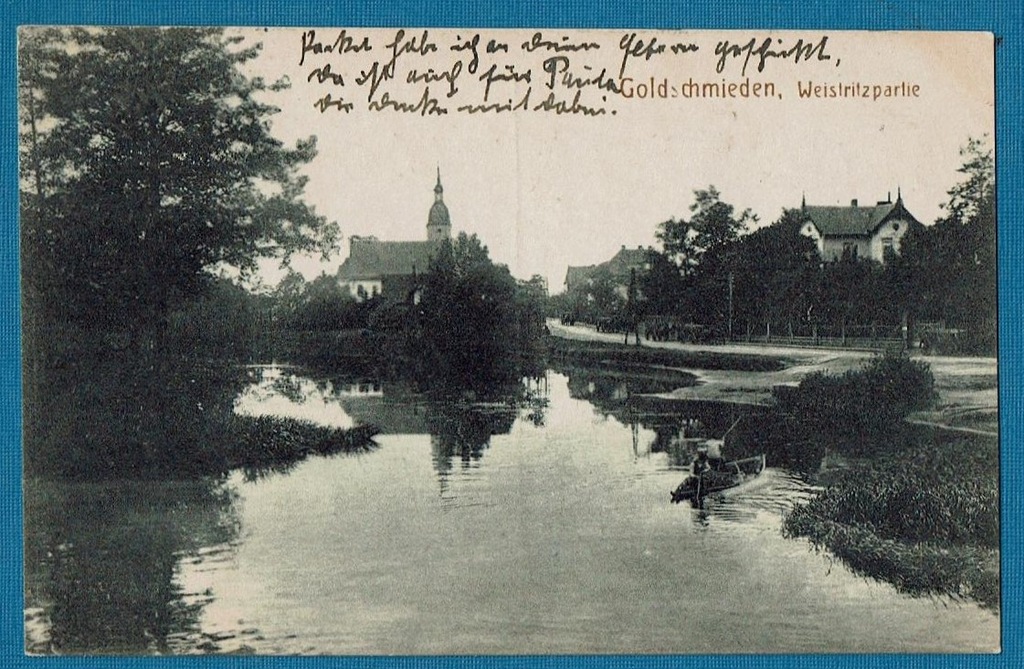 Paket habe ich an deine Eltern geschickt,
da ist auch für Paula
die dabei.
Goldschmieden, Weistritzpartie